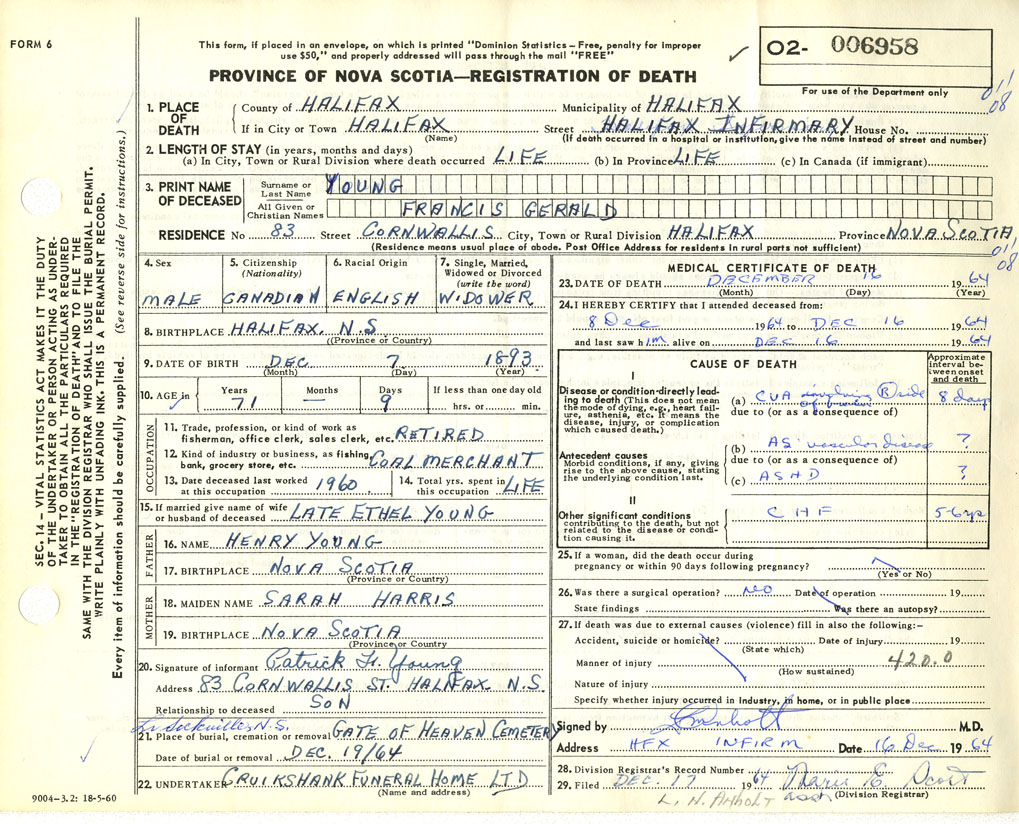 FORM 6
This form, if placed in an envelope, on which is printed "Dominion Statistics – Free, penalty for improper
use $50," and properly addressed will pass through the mail "FREE"
O2- 006958
For use of the Department only
PROVINCE OF NOVA SCOTIA—REGISTRATION OF DEATH
1. PLACE OF DEATH
County of HALIFAX Municipality of HALIFAX
If in City or Town HALIFAX Street HALIFAX INFIRMARY House No.
(Name) (If death occurred in a hospital or institution, give the name instead of street and number)
2. LENGTH OF STAY (in years, months and days)
(a) In City, Town or Rural Division where death occurred LIFE (b) In Province LIFE (c) In Canada (if immigrant)
3. PRINT NAME OF DECEASED
Surname or Last Name YOUNG
All Given or Christian Names FRANCIS GERALD
RESIDENCE No 83 Street CORNWALLIS City, Town or Rural Division HALIFAX Province NOVA SCOTIA
(Residence means usual place of abode. Post Office Address for residents in rural parts not sufficient)
01/08
01/08
4. Sex MALE
5. Citizenship (Nationality) CANADIAN
6. Racial Origin ENGLISH
7. Single, Married, Widowed or Divorced (write the word) WIDOWER
8. BIRTHPLACE HALIFAX. N.S
(Province or Country)
9. DATE OF BIRTH DEC 7 1893
(Month) (Day) (Year)
10. AGE in Years 71 Months — Days 9 If less than one day old hrs. or min.
OCCUPATION
11. Trade, profession, or kind of work as
fisherman, office clerk, sales clerk, etc. RETIRED
12. Kind of industry or business, as fishing,
bank, grocery store, etc. COAL MERCHANT
13. Date deceased last worked at this occupation 1960
14. Total yrs. spent in this occupation LIFE
15. If married give name of wife
or husband of deceased LATE ETHEL YOUNG
FATHER
16. NAME HENRY YOUNG
17. BIRTHPLACE NOVA SCOTIA
(Province or Country)
MOTHER
18. MAIDEN NAME SARAH HARRIS
19. BIRTHPLACE NOVA SCOTIA
(Province or Country)
20. Signature of informant Patrick H. Young
Address 83 CORNWALLIS ST. HALIFAX N.S.
Relationship to deceased SON
Lr Sackville, N.S.
21. Place of burial, cremation or removal GATE OF HEAVEN CEMETERY
Date of burial or removal DEC. 19/64
22. UNDERTAKER CRUIKSHANK FUNERAL HOME LTD
(Name and address)
MEDICAL CERTIFICATE OF DEATH
23. DATE OF DEATH DECEMBER 16 1964
(Month) (Day) (Year)
24. I HEREBY CERTIFY that I attended deceased from:
8 Dec 1964 to DEC 16 1964
and last saw him alive on DEC 16 1964
CAUSE OF DEATH
Approximate interval between onset and death
I
Disease or condition directly leading to death (This does not mean the mode of dying, e.g., heart failure, asthenia, etc. It means the disease, injury, or complication which caused death.)
(a) CVA involving (R) side 8 days
due to (or as a consequence of)
(b) AS vascular disease ?
due to (or as a consequence of)
Antecedent causes
Morbid conditions, if any, giving rise to the above cause, stating the underlying condition last.
(c) ASHD ?
II
Other significant conditions
contributing to the death, but not related to the disease or condition causing it.
CHF 5-6 yrs
25. If a woman, did the death occur during
pregnancy or within 90 days following pregnancy?
(Yes or No)
26. Was there a surgical operation? NO Date of operation 19
State findings Was there an autopsy?
27. If death was due to external causes (violence) fill in also the following:-
Accident, suicide or homicide? Date of injury 19
(State which)
Manner of injury 420.0
(How sustained)
Nature of injury
Specify whether injury occurred in industry, in home, or in public place
Signed by M.D.
Address HFX INFIRM Date 16 Dec 1964
28. Division Registrar's Record Number
29. Filed DEC. 17 1964 Marie E. Scott
(Division Registrar)
L. N. ANHOLT asst
9004–3.2: 18-5-60
SEC. 14 – VITAL STATISTICS ACT MAKES IT THE DUTY
OF THE UNDERTAKER OR PERSON ACTING AS UNDER-
TAKER TO OBTAIN ALL THE PARTICULARS REQUIRED
IN THE "REGISTRATION OF DEATH" AND TO FILE THE
SAME WITH THE DIVISION REGISTRAR WHO SHALL ISSUE THE BURIAL PERMIT.
WRITE PLAINLY WITH UNFADING INK. THIS IS A PERMANENT RECORD.
Every item of information should be carefully supplied. (See reverse side for instructions.)